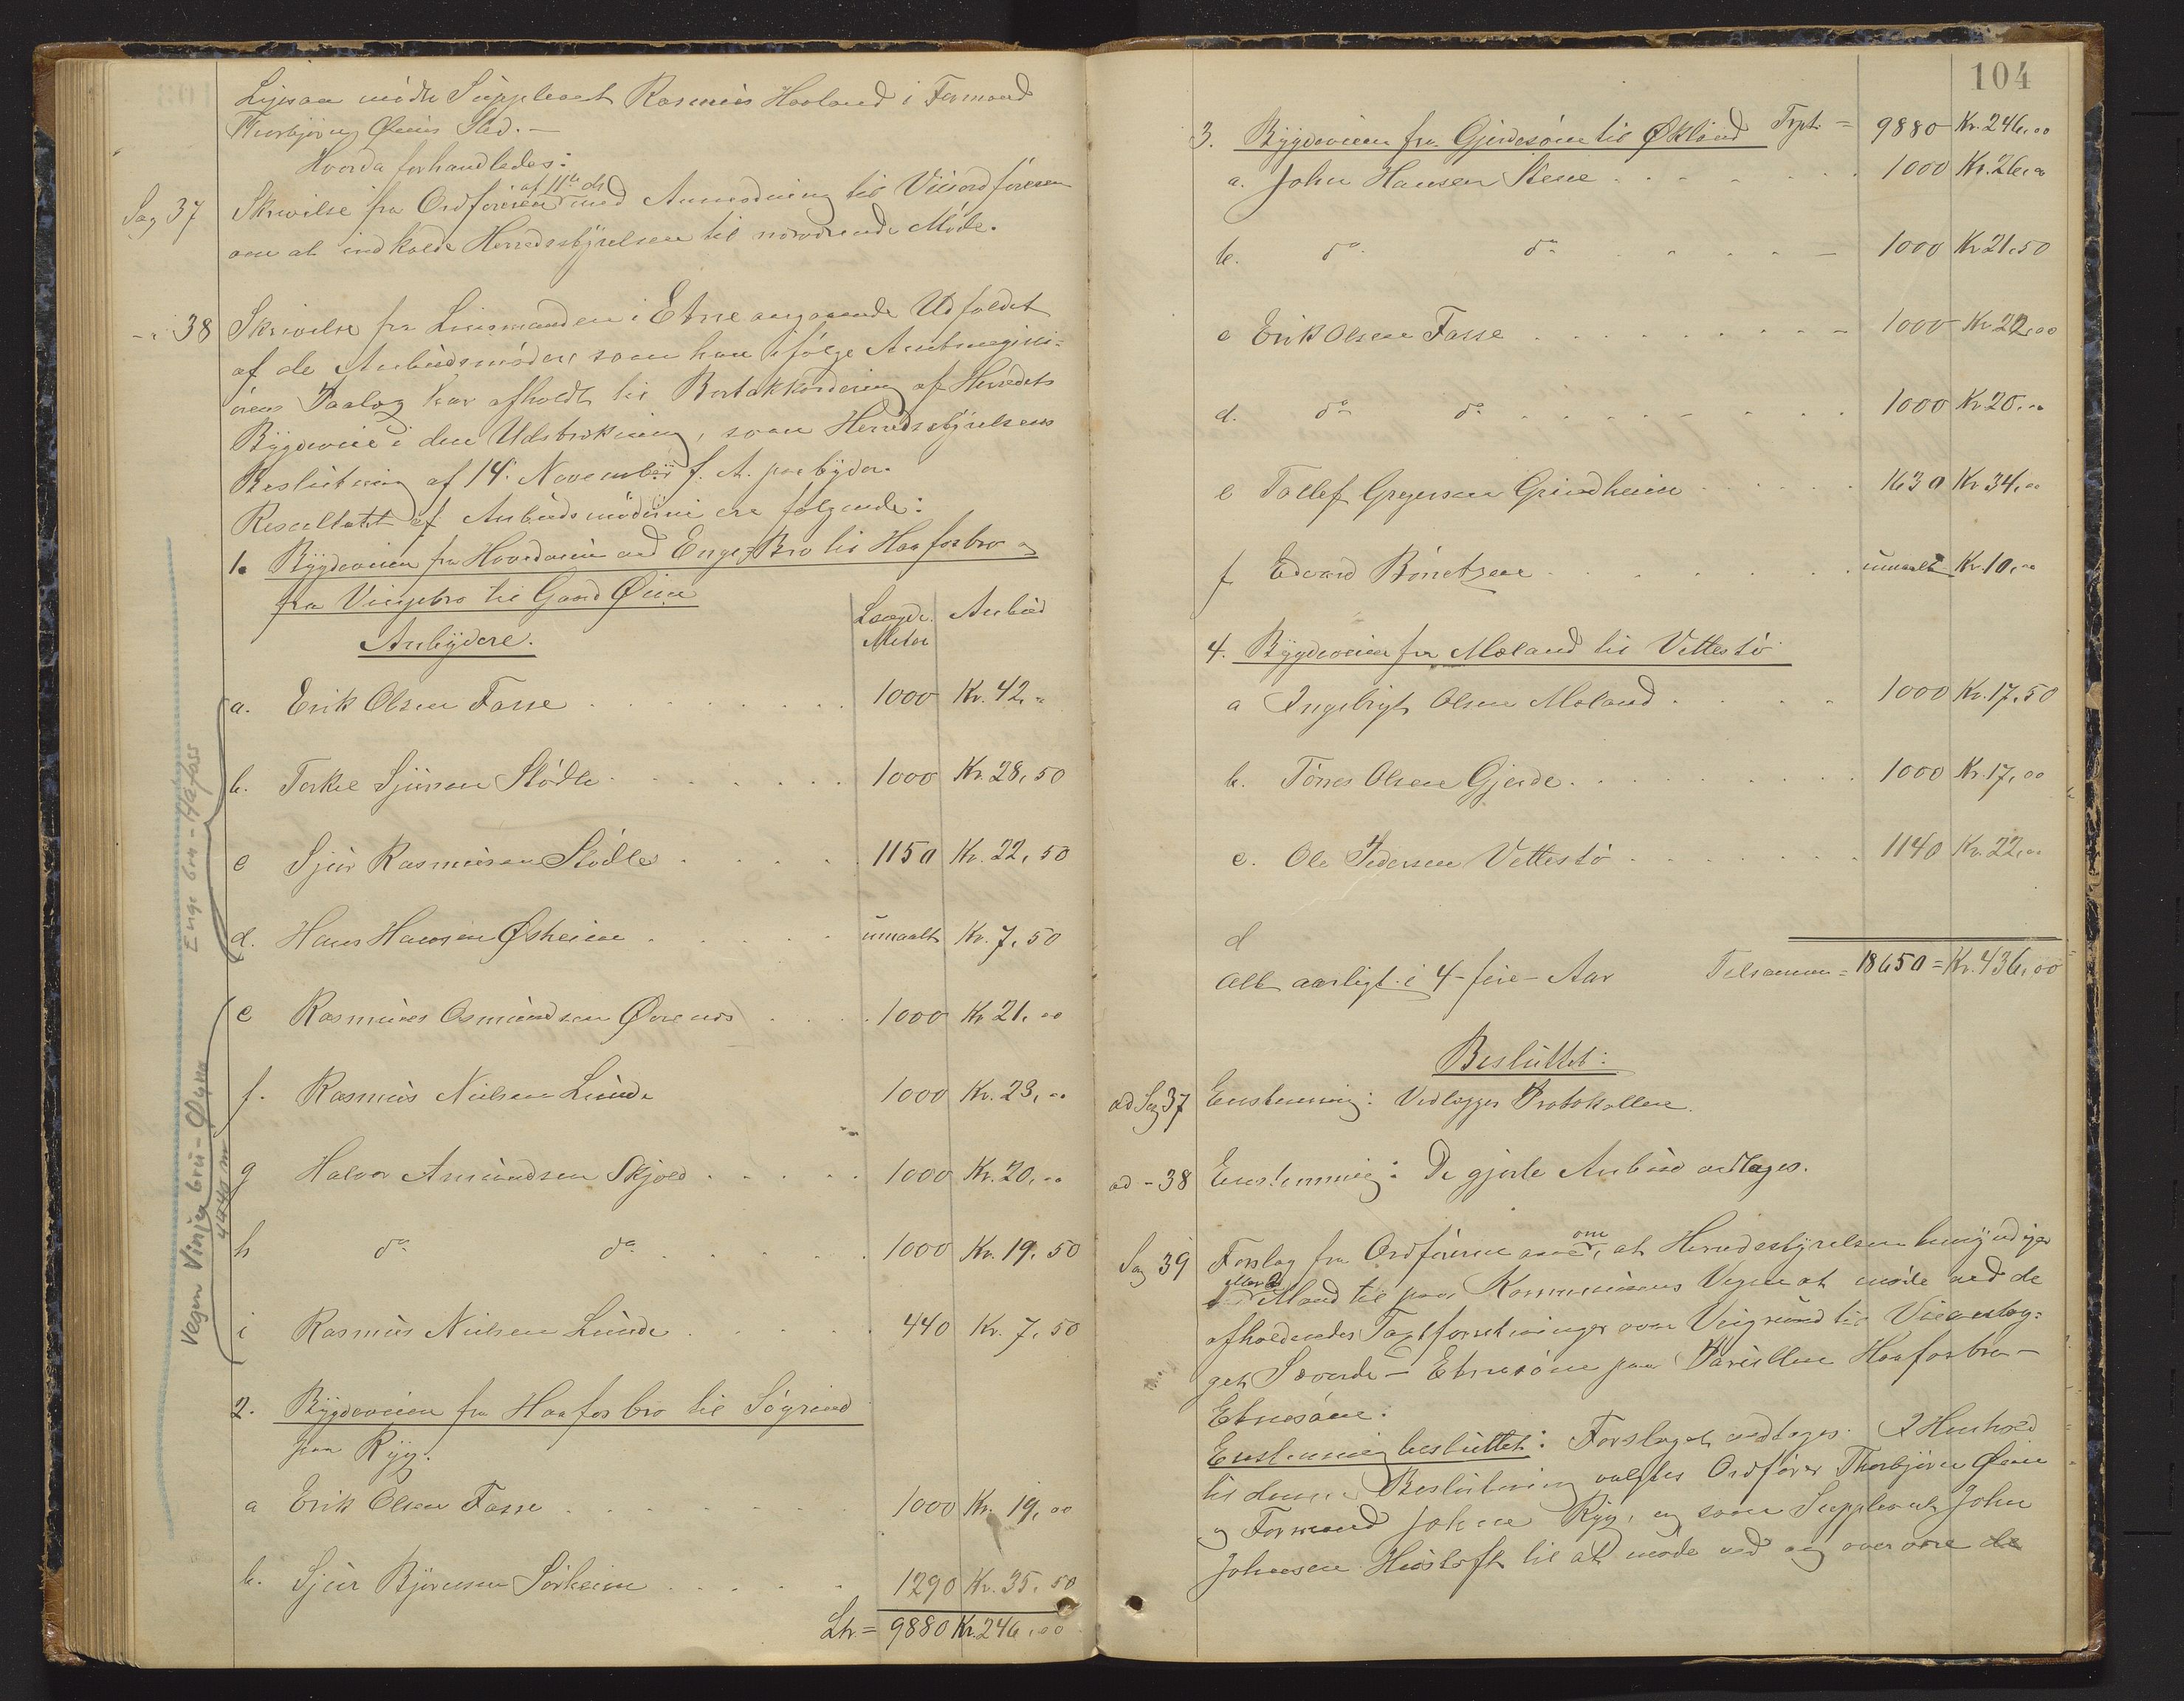 Ligesaa mødte Suppleant Rasmus Haaland i Formand
Thorbjørn Øiens Sted.—
Hvorda forhandledes:
Sag 37 Skrivelse fra Ordføreren af 11te ds med Anmodning til Viseordføreren
om at indkalde Herredsstyrelsen til nærværende Møde.
-"- 38 Skrivelse fra Lensmanden i Etne angaaende Udfaldet
af de Anbudsmøder som han ifølge Amtsingeni-
ørens Paalæg har afholdt til Bortakkordering af Herredets
Bygdeveie i den Udstrækning, som Herredsstyrelsens
Beslutning af 14. November f. A. paabyder.
Resultatet af Anbudsmøderne ere følgende:
1. Bygdeveien fra Hovedveien ved Enge-Bro til Haafosbro og
fra Vinjebro til Gaard Øien
Længde. Meter Anbud
Anbydere.
a. Erik Olsen Fasse 1000 Kr. 42,"
b. Torkel Sjursen Stødle 1000 Kr. 28,50
c Sjur Rasmussen Stødle 1150 Kr. 22,50
d. Hans Hansen Østreim umaalt Kr. 7,50
e Rasmus Osmundsen Øvrenes 1000 Kr 21,00
f. Rasmus Nielsen Lunde 1000 Kr. 23,00
g Halvor Amundsen Skjold 1000 Kr. 20,00
h do do 1000 Kr. 19,50
i Rasmus Nielsen Lunde 440 Kr. 7,50
Enge bru - Håfoss
Vegen Vinje bru - Øyna
4440 m
2. Bygdeveien fra Haafosbro til Søgrind
paa Ryg.
a Erik Olsen Fasse 1000 Kr. 19,00
b. Sjur Bjørnsen Sørheim 1290 Kr. 35,50
Ltr = 9880 Kr. 246,00
104
Trpt = 9880 Kr. 246,00
3. Bygdeveien fra Gjerdesøen til Økland
a. John Hansen Stene 1000 Kr. 26,00
b. do do 1000 Kr 21,50
c Erik Olsen Fasse 1000 Kr 22,00
d. do do 1000 Kr 20,00
e Tollef Gregersen Grindheim 1630 Kr 34,00
f Edvard Børretzen umaalt Kr. 10,00
4. Bygdeveien fra Mæland til Vettestø
a Ingebrigt Olsen Mæland 1000 Kr. 17,50
b. Tørres Olsen Gjerde 1000 Kr. 17,00
c. Ole Pedersen Vettestø 1140 Kr. 22,00
d
Alt aarligt i 4-fire-Aar Tilsammen = 18650 = Kr. 436,00
Besluttet:
ad Sag 37 Enstemmig: Vedlægges Protokollen.
ad - 38 Enstemmig: De gjorte Anbud vedtages.
Sag 39 Forslag fra Ordføreren om, at Herredsstyrelsen bemyndiger
1 eller 2 Mand til paa Kommunens Vegne at møde ved de
afholdendes Taxtforretninger over Veigrund til Veianlæg-
get Sævareide - Etnesøen paa Parcellen Haafosbro -
Etnesøen.
Enstemmig besluttet: Forslaget vedtages. I Henhold
til denne Beslutning valgtes Ordfører Thorbjørn Øien
og Formand Johne Ryg, og som Suppleant John
Johnsen Husloft til at møde ved og overvære de